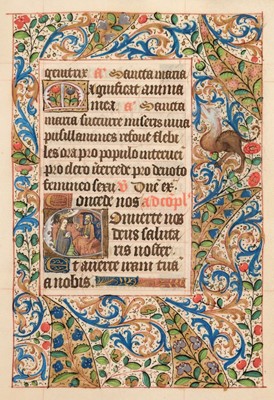 genitrix a Sancta maria
Magnificat anima
mea. a Sancta
maria succurre miseris iuva
pusillanimes refove flebi
les ora pro populo interveni
pro clero intercede pro devoto
femineo sexu V Dne ex
Concede nos ad copl
Converte nos
deus saluta
ris noster
Et averte iram tua
a nobis